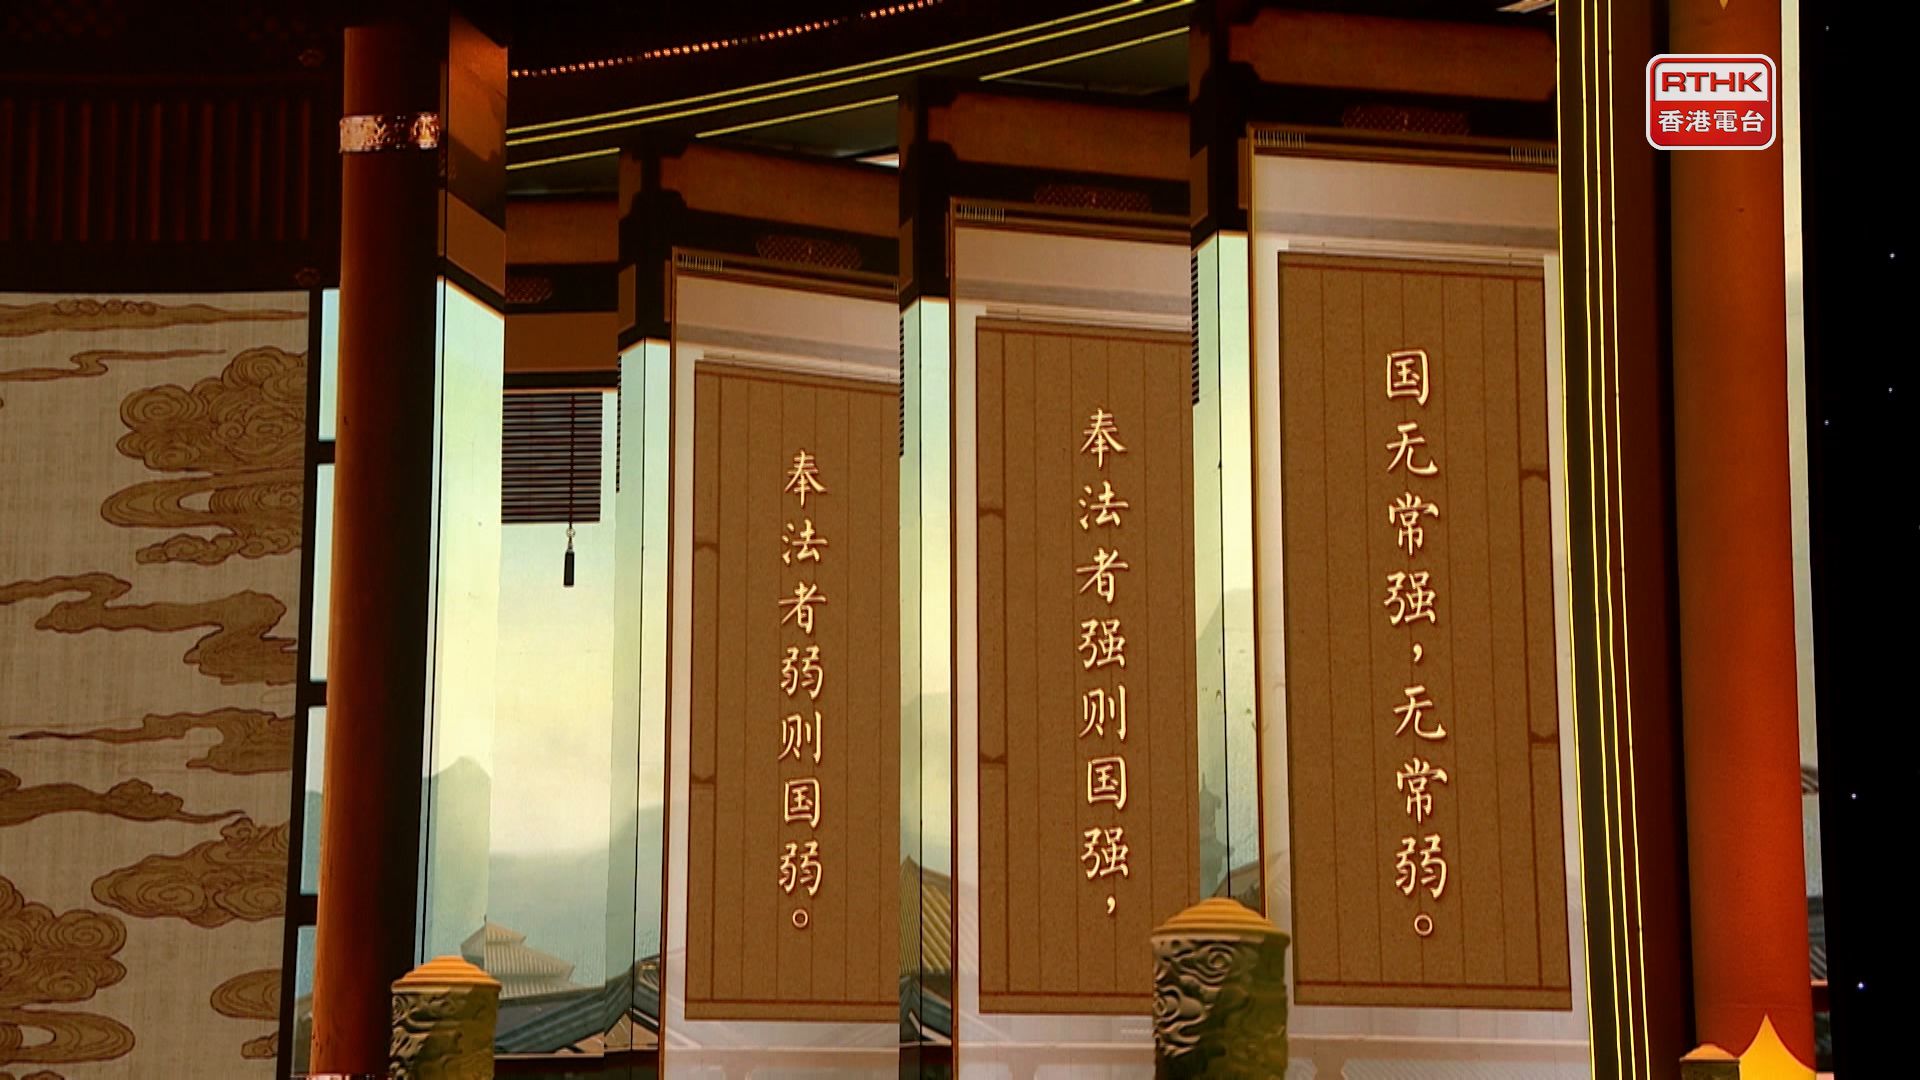 国无常强，无常弱。
奉法者强则国强，
奉法者弱则国弱。
RTHK
香港電台